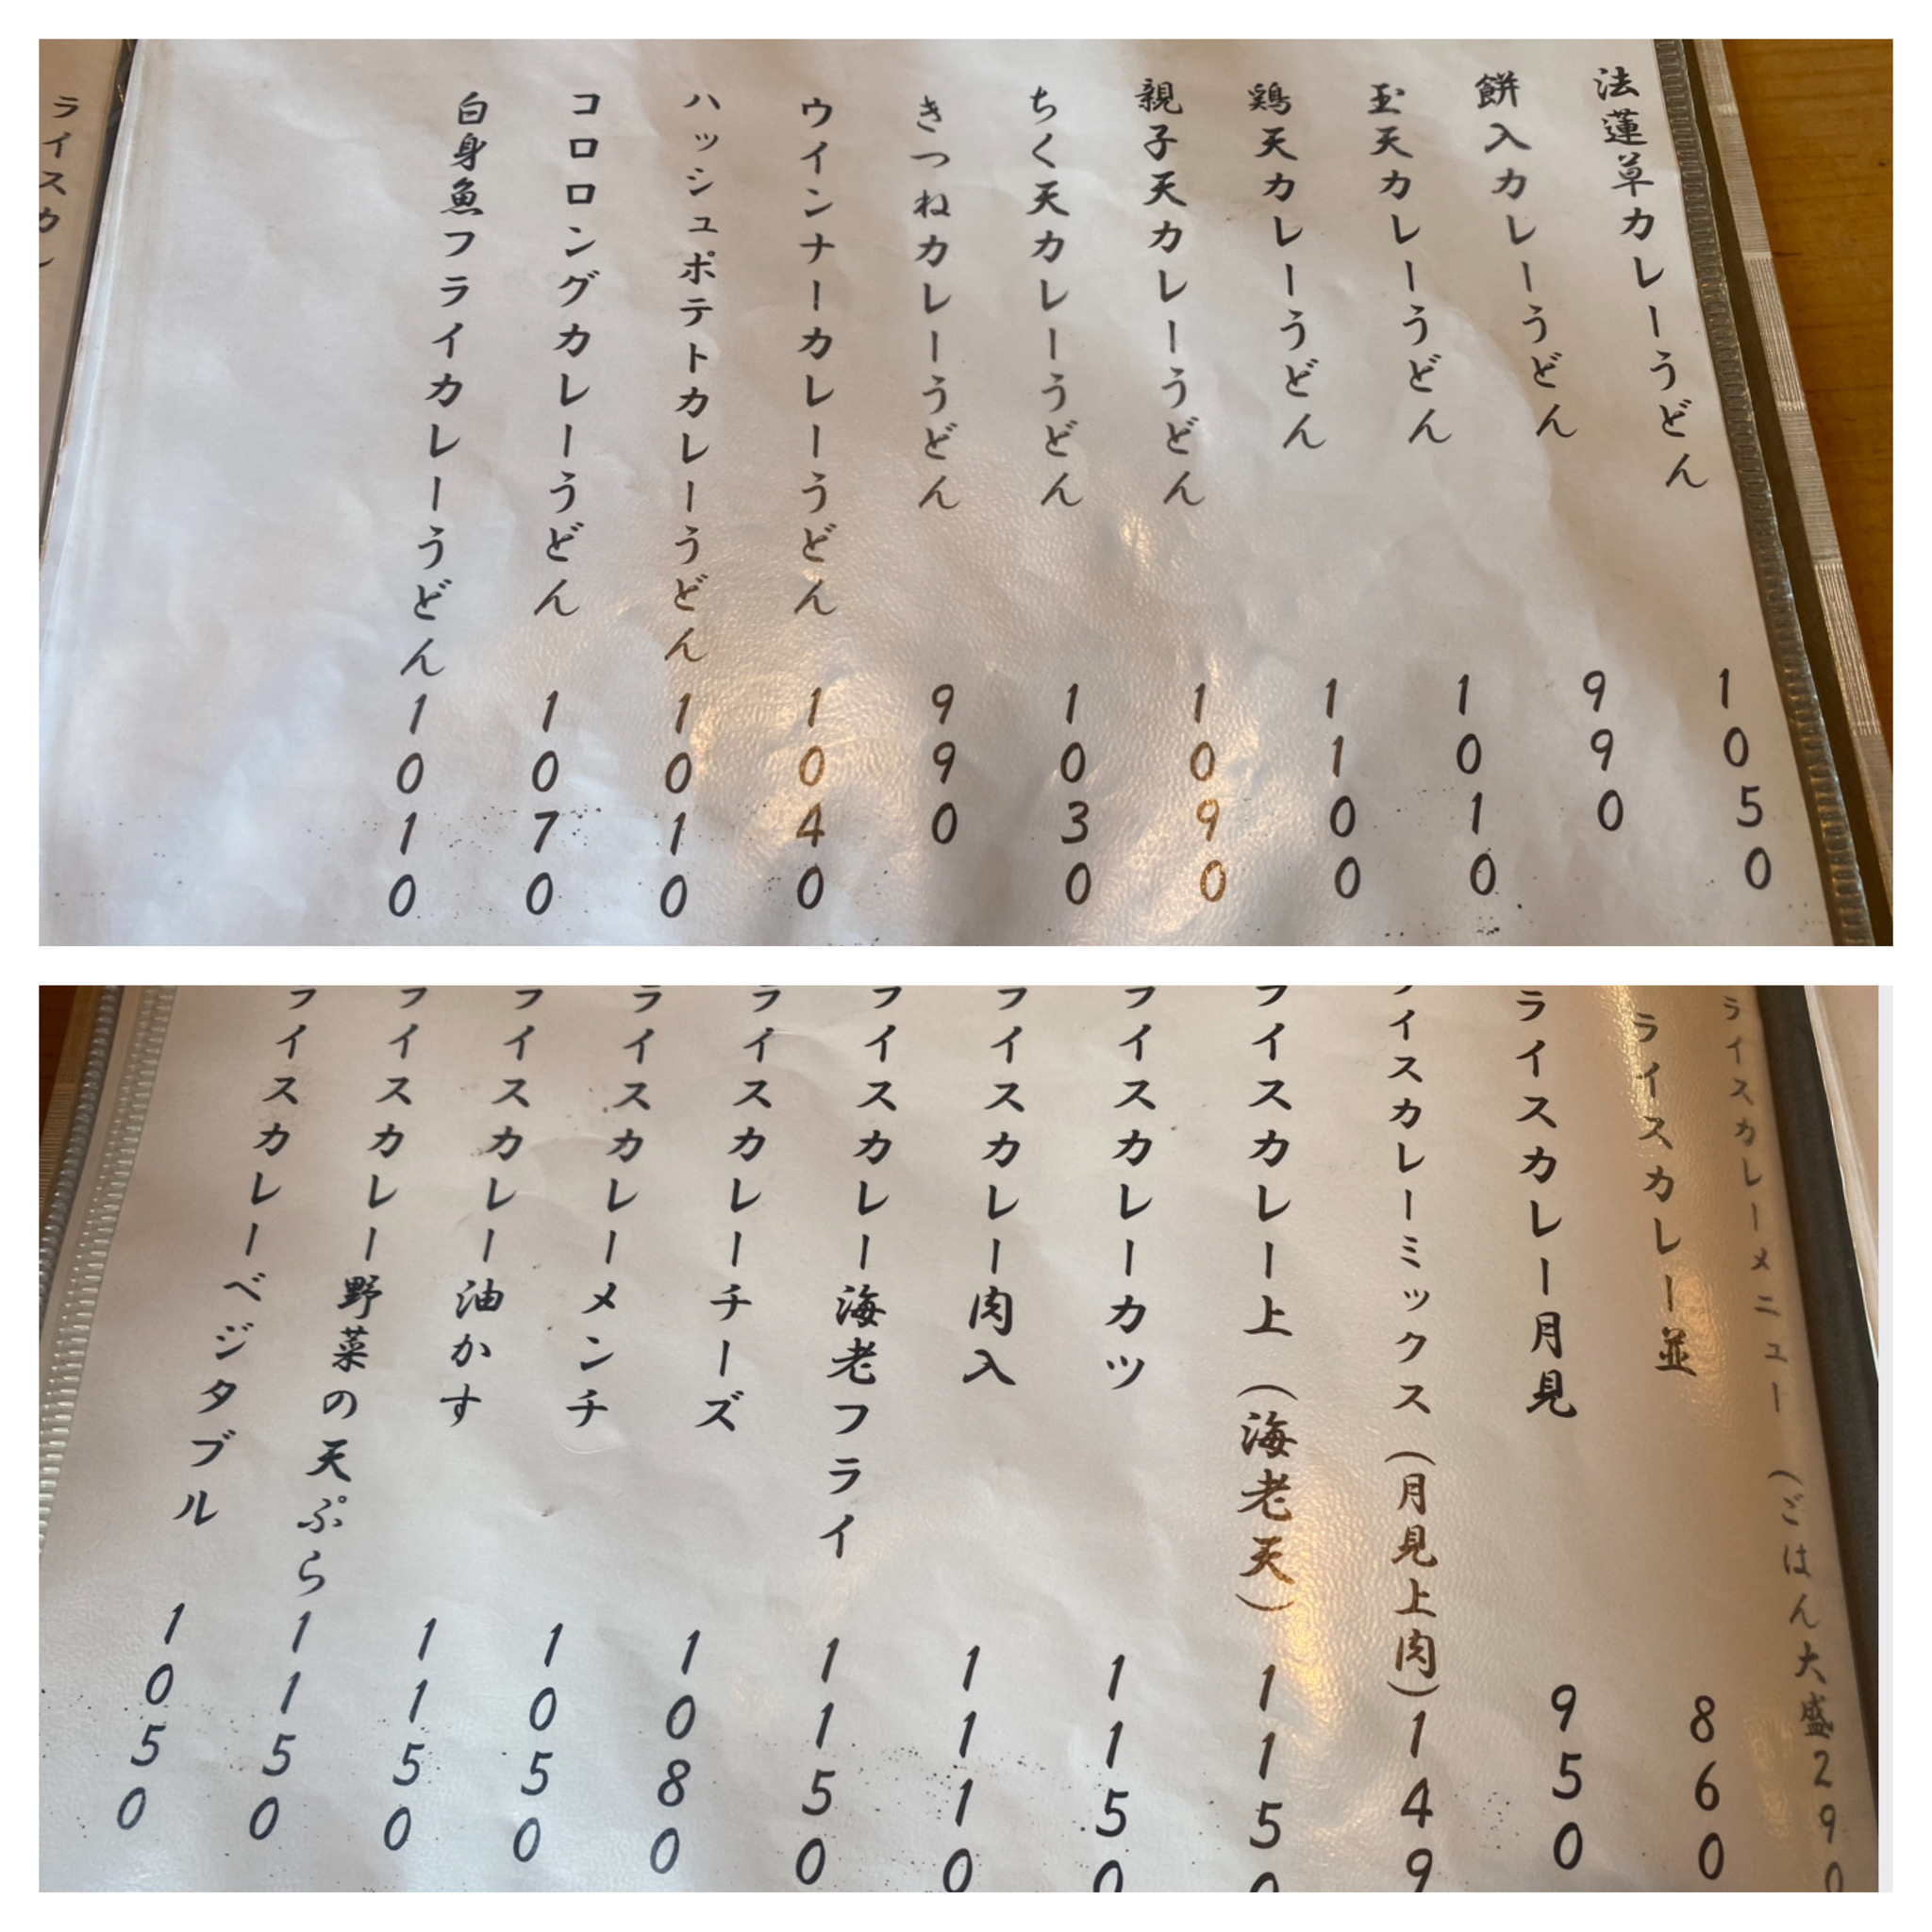 法蓮草カレーうどん 1050
餅入カレーうどん 990
玉天カレーうどん 1010
鶏天カレーうどん 1100
親子天カレーうどん 1090
ちく天カレーうどん 1030
きつねカレーうどん 990
ウインナーカレーうどん 1040
ハッシュポテトカレーうどん 1010
コロロングカレーうどん 1070
白身魚フライカレーうどん 1010
ライスカレ
ライスカレーメニュー (ごはん大盛290
ライスカレー並 860
ライスカレー月見 950
ライスカレーミックス(月見上肉) 149
ライスカレー上(海老天) 1150
ライスカレーカツ 1150
ライスカレー肉入 1110
ライスカレー海老フライ 1150
ライスカレーチーズ 1080
ライスカレーメンチ 1050
ライスカレー油かす 1150
ライスカレー野菜の天ぷら 1150
ライスカレーベジタブル 1050